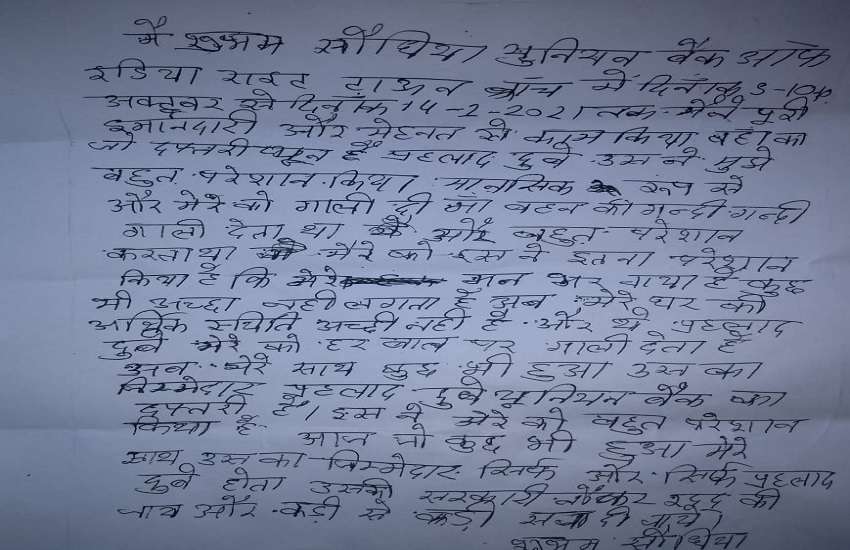 मै शुभम सौंधिया युनियन बैंक ऑफ
इंडिया राइट टाऊन ब्रांच में दिनाँक
अक्टूबर से दिनाँक 14-2-2021 तक मैने पूरी
इमानदारी और मेहनत से काम किया वहा का
जो दफ्तरी है प्रहलाद दुबे उस ने मुझे
बहुत परेशान किया। मानसिक रूप से
और मेरे को गाली दी माँ बहन की गन्दी गन्दी
गाली देता था और बहुत परेशान
करता था मेरे को इस ने इतना परेशान
किया है कि मन भर गया है कुछ
भी अच्छा नही लगता है अब मेरे घर की
आर्थिक स्थिति अच्छी नही है और ये प्रहलाद
दुबे मेरे को हर बात पर गाली देता है
अब मेरे साथ कुछ भी हुआ उस का
जिम्मेदार प्रहलाद दुबे युनियन बैंक का
दफ्तरी है। इस ने मेरे को बहुत परेशान
किया है आज जो कुछ भी हुआ मेरे
साथ उस का जिम्मेदार सिर्फ और सिर्फ प्रहलाद
दुबे होगा उसकी सरकारी नौकर रद्द की
जाय और कड़ी से कड़ी सजा दी जाये।
शुभम सौंधिया